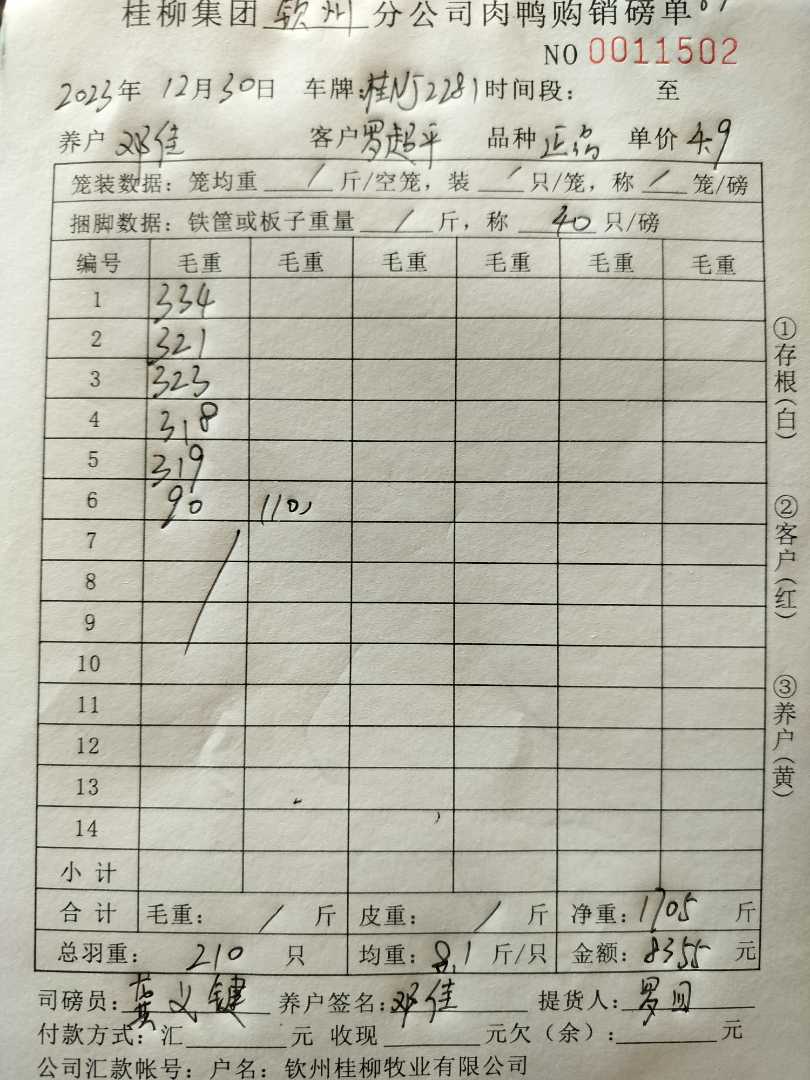 桂柳集团 钦州 分公司肉鸭购销磅单
NO 0011502
2023年 12月30日 车牌:桂NJ2281 时间段: 至
养户 邓佳 客户 罗超平 品种 正品 单价 4.9
笼装数据: 笼均重 / 斤/空笼, 装 / 只/笼, 称 / 笼/磅
捆脚数据: 铁筐或板子重量 / 斤, 称 40 只/磅
编号 毛重 毛重 毛重 毛重 毛重 毛重
1 334
2 321
3 323
4 318
5 319
6 90 (10)
7
8
9
10
11
12
13
14
小 计
合 计 毛重: / 斤 皮重: / 斤 净重: 1705 斤
总羽重: 210 只 均重: 8.1 斤/只 金额: 8355 元
司磅员: 黄义键 养户签名: 邓佳 提货人: 罗
付款方式: 汇 元 收现 元欠(余): 元
公司汇款帐号: 户名: 钦州桂柳牧业有限公司
①存根(白)
②客户(红)
③养户(黄)